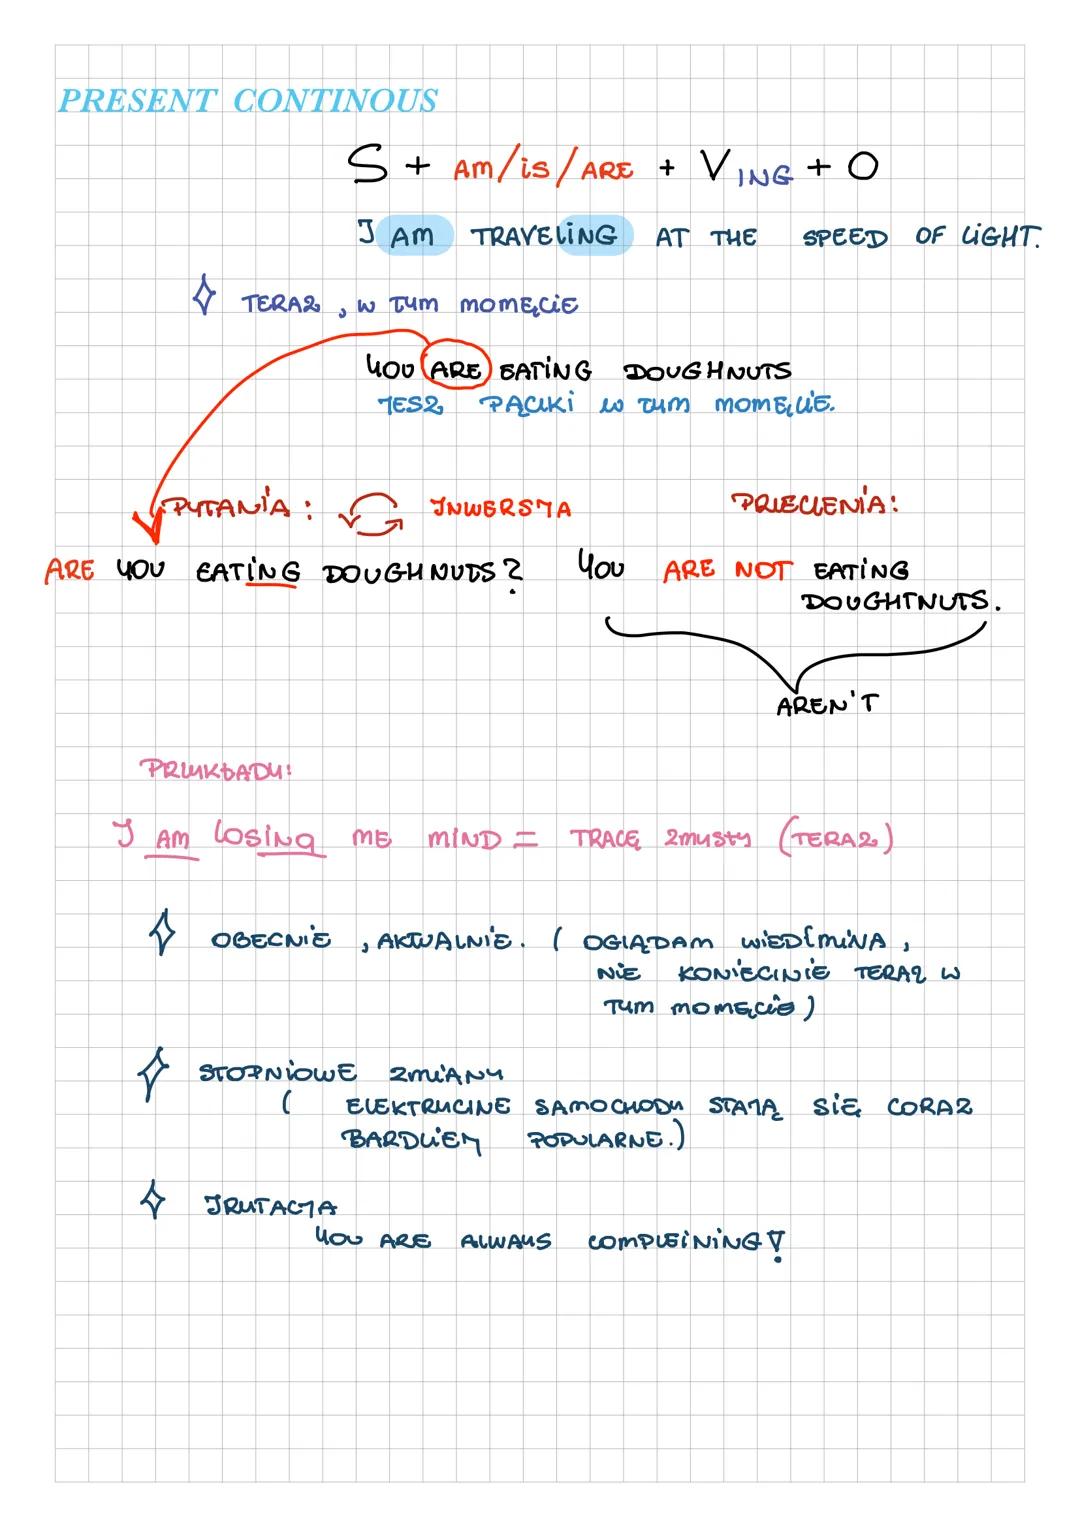 PRESENT CONTINOUS
S + AM/iS/ARE + V ING + O
I AM TRAVELING AT THE SPEED OF LIGHT.
TERAZ, W TYM MOMĘCIE
YOU ARE EATING DOUGHNUTS
JESZ PĄCZKI W TYM MOMĘCIE.
PYTANIA: INWERSJA PRZECZENIA:
ARE YOU EATING DOUGHNUTS? YOU ARE NOT EATING
DOUGHTNUTS.
AREN'T
PRZYKŁADY:
I AM LOSING ME MIND = TRACĘ ZMYSŁY (TERAZ)
OBECNIE, AKTUALNIE. ( OGLĄDAM WIEDŹMINA,
NIE KONIECZNIE TERAZ W
TYM MOMĘCIE)
STOPNIOWE ZMIANY
( ELEKTRYCZNE SAMOCHODY STAJĄ SIĘ CORAZ
BARDZIEJ POPULARNE.)
IRYTACJA
YOU ARE ALWAYS COMPLEINING!